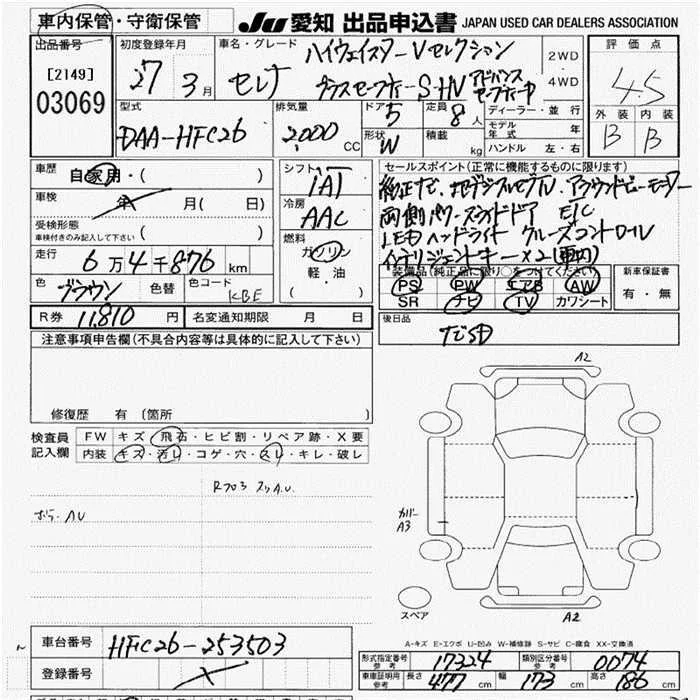 車内保管・守衛保管
JU 愛知 出品申込書 JAPAN USED CAR DEALERS ASSOCIATION
出品番号 初度登録年月 車名・グレード ハイウェイスターVセレクション 2WD 評価点
[2149] 27 3月 セレナ プラスセーフティーS-HV アドバンスセーフティーP 4WD 4.5
03069
型式 排気量 ドア 5 定員 8人 ディーラー・並行 外装 内装
DAA-HFC26 2,000 CC 形状 W 積載 kg モデル年式 年 B B
ハンドル 左・右
車歴 自家用・( ) シフト IAT セールスポイント(正常に機能するものに限ります)
車検 年 月( 日) 冷房 AAC 純正ナビ、地デジフルセグTV、アラウンドビューモニター
受検形態 両側パワースライドドア ETC
車検付きのみ記入して下さい ( ) 燃料 LEDヘッドライト クルーズコントロール
走行 6万4千876km ガソリン インテリジェントキー×2(車内)
軽油
( )
装備品(純正品に限り○をつけてください) 新車保証書
色 ブラウン 色替 色コード KBE PS PW エアB AW 有・無
SR ナビ TV カワシート
R券 11,810 円 名変通知期限 月 日 後日品
ナビSD
注意事項申告欄(不具合内容等は具体的に記入して下さい)
修復歴 有(箇所 )
検査員記入欄 FW キズ・飛石・ヒビ割・リペア跡・X要
内装 キズ・汚レ・コゲ・穴・スレ・キレ・破レ
A2
カバー
A3
スペア
A2
A-キズ E-エクボ U-凹み W-補修跡 S-サビ C-腐食 XX-交換済
車台番号 HFC26-253503 形式指定番号 参考 17324 類別区分番号 参考 0074
登録番号 車庫証明用 参考 長さ 477 cm 幅 173 cm 高さ 186 cm